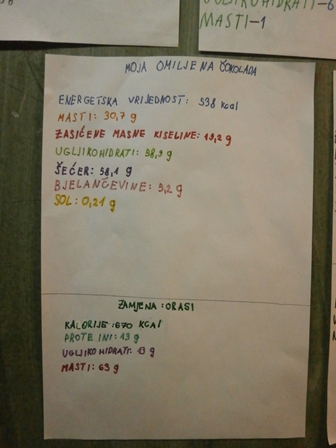 UGLJIKOHIDRATI-6
MASTI-1
MOJA OMILJENA ČOKOLADA
ENERGETSKA VRIJEDNOST: 538 kcal
MASTI: 30,7 g
ZASIĆENE MASNE KISELINE: 19,2 g
UGLJIKOHIDRATI: 58,9 g
ŠEĆER: 58,1 g
BJELANČEVINE: 5,2 g
SOL: 0,21 g
ZAMJENA: ORASI
KALORIJE: 670 KCAL
PROTEINI: 13 g
UGLJIKOHIDRATI: 13 g
MASTI: 63 g